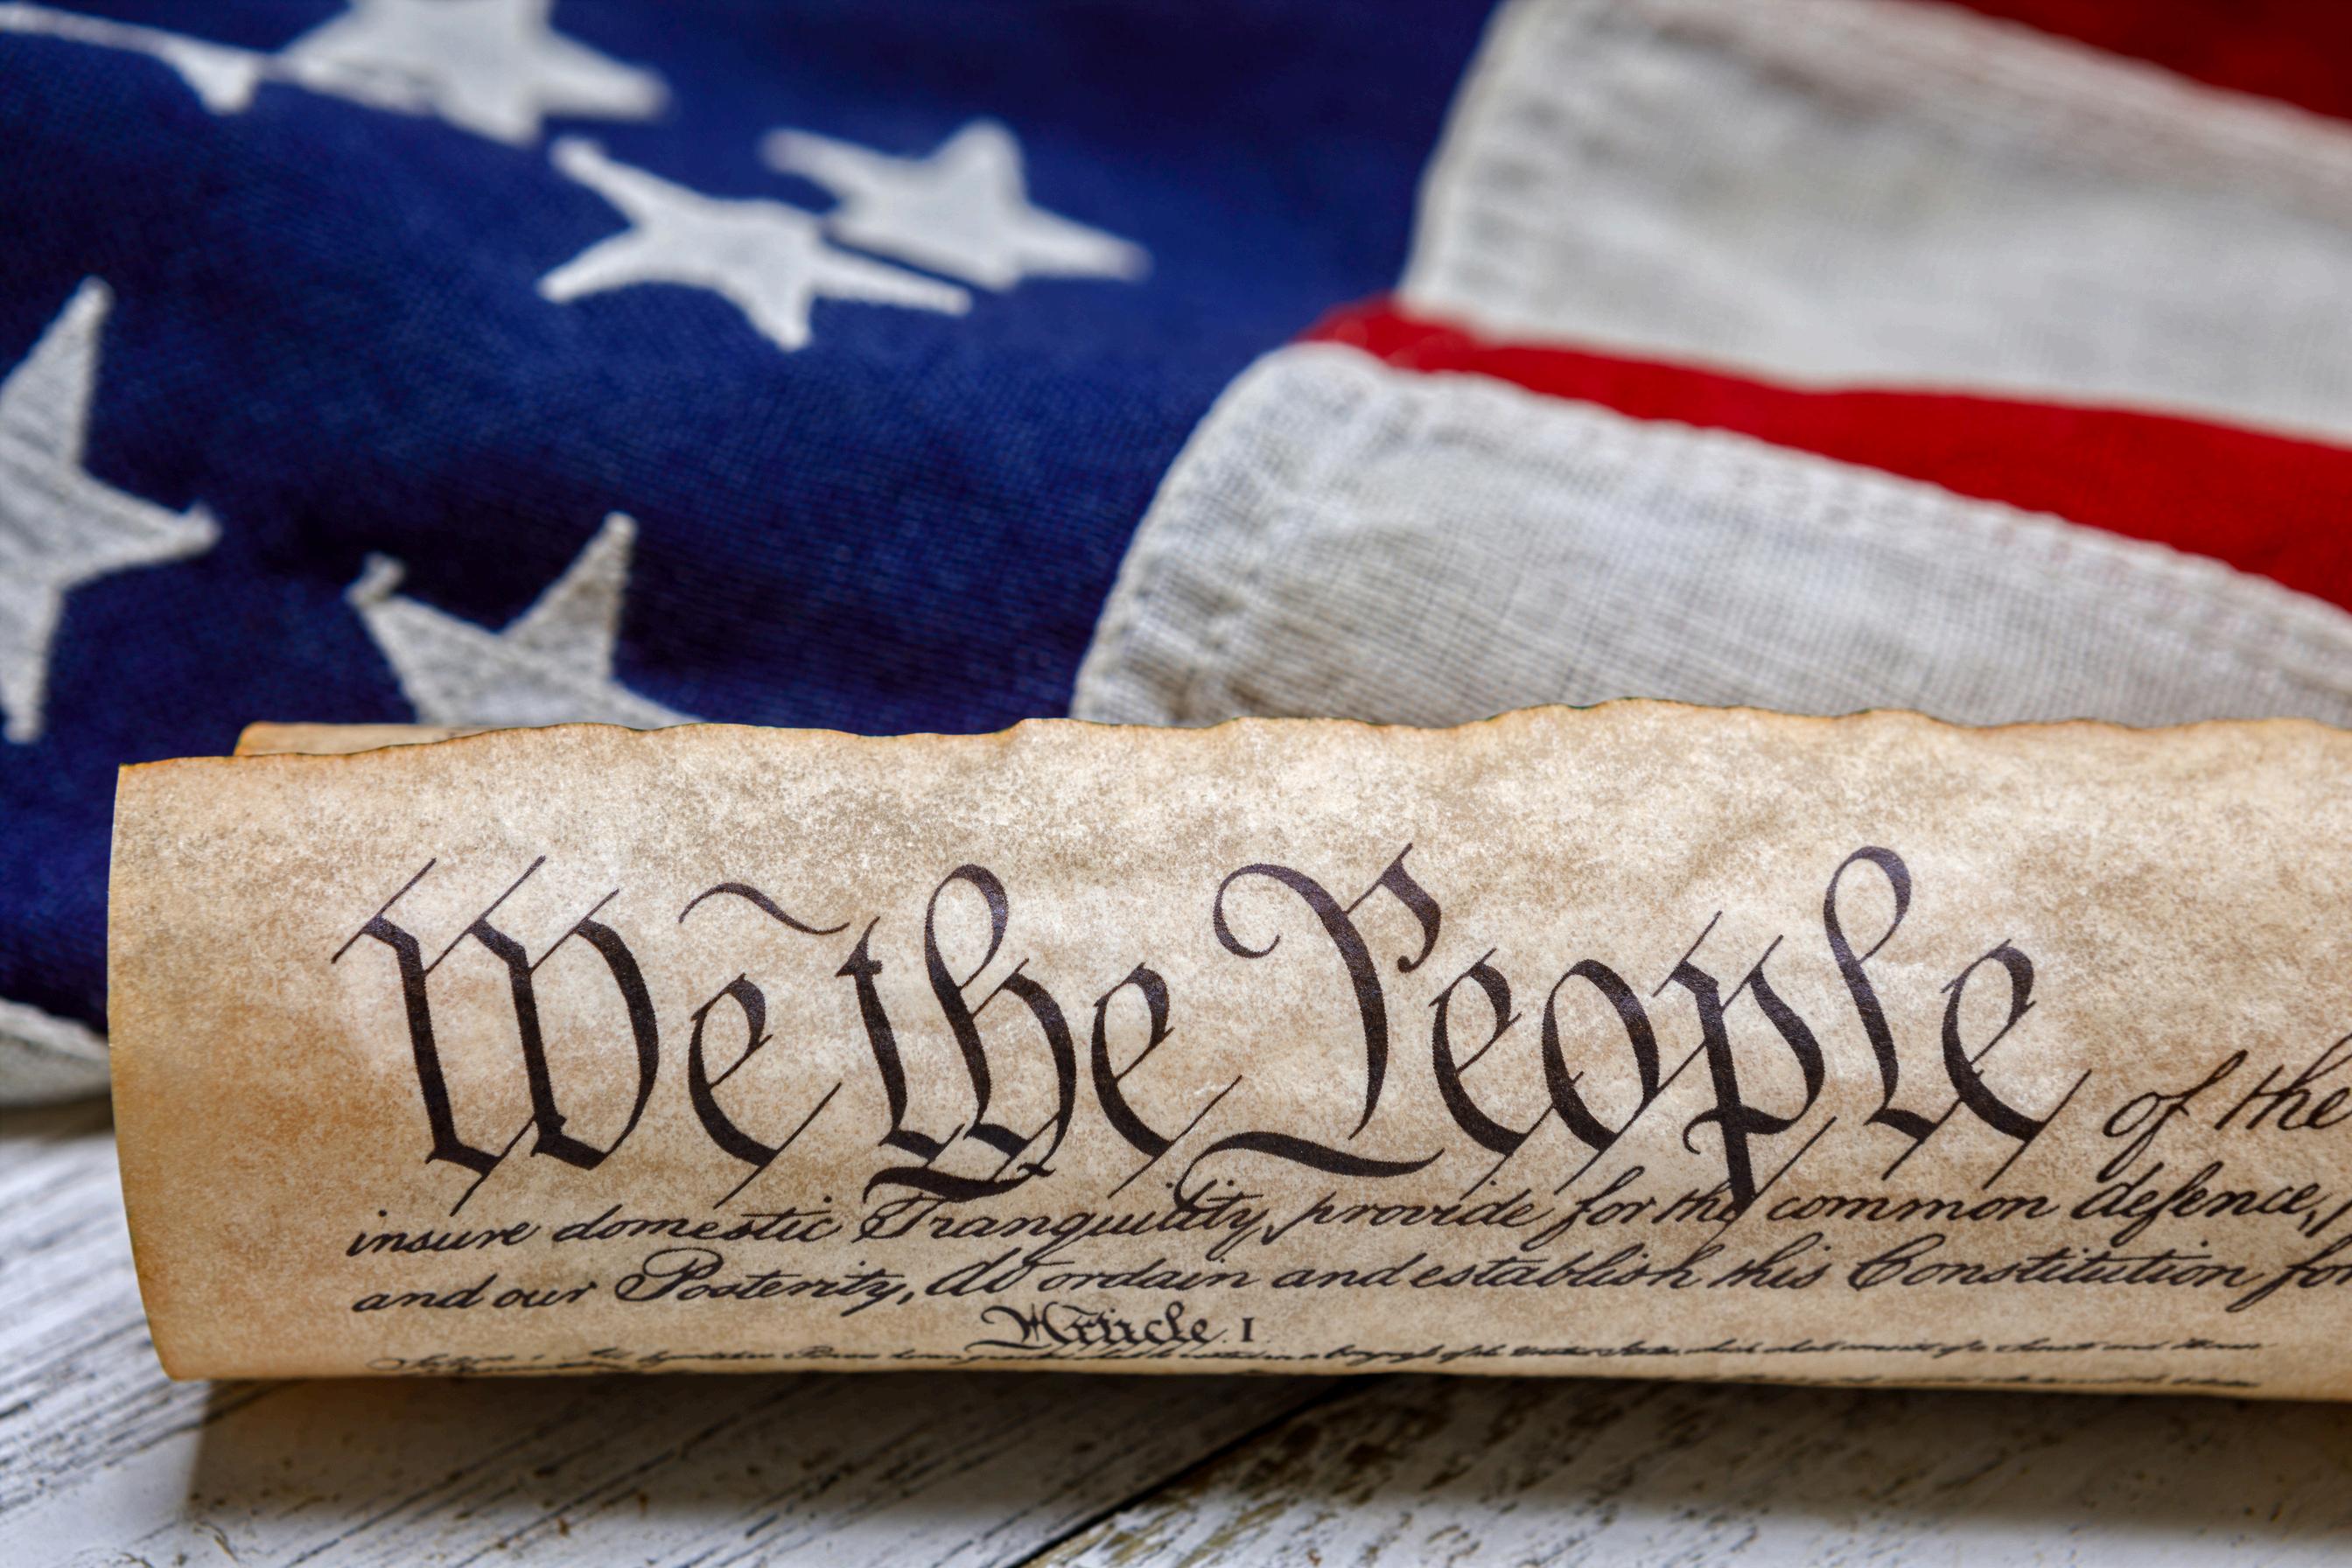 We the People of the
insure domestic Tranquility, provide for the common defence,
and our Posterity, do ordain and establish this Constitution for
Article. I